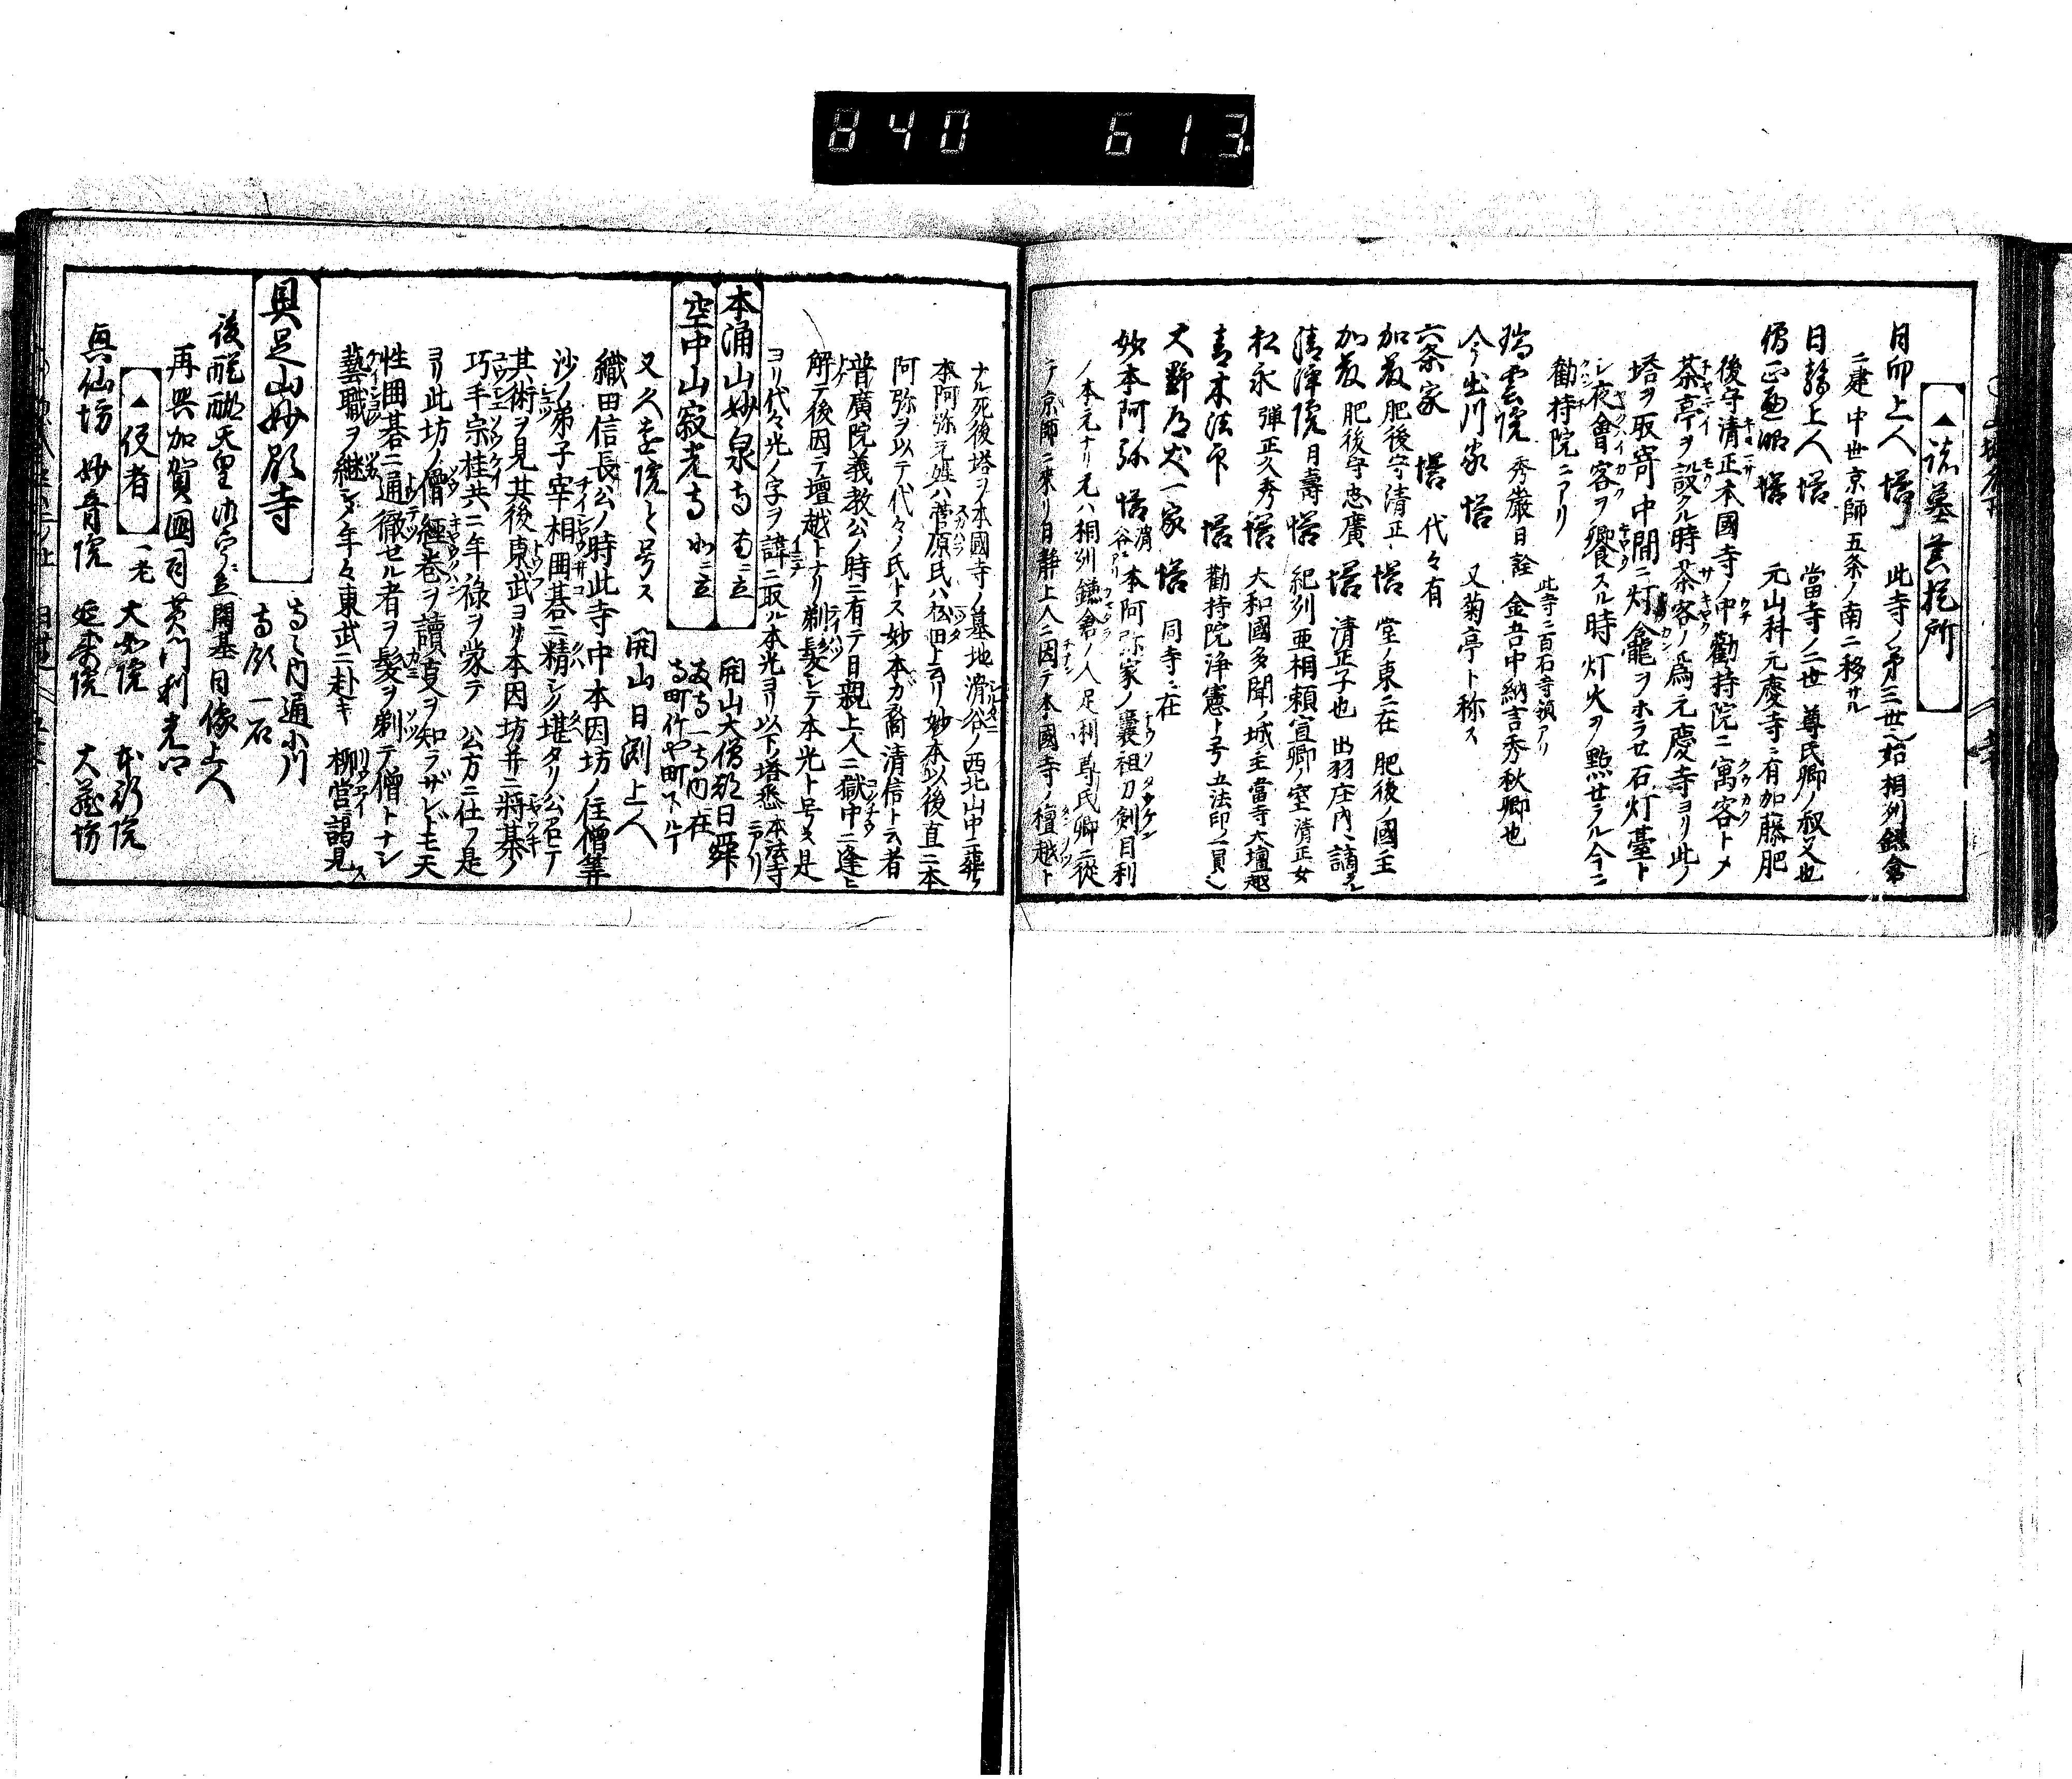 840 613
▲諸墓菩提所
日印上人塔 此寺ノ第三世始相刕鎌倉
ニ建中世京師五条ノ南ニ移サル
日静上人塔 當寺ノ二世尊氏卿ノ叔父也
僧正遍昭塔 元山科元慶寺ニ有加藤肥
後守清正本國寺ノ中勸持院ニ寓客トメ
茶亭ヲ設クル時茶客ノ爲元慶寺ヨリ此ノ
塔ヲ取寄中間ニ灯籠ヲホラセ石灯臺ト
シ夜會客ヲ饗スル時灯火ヲ點セラル今ニ
勸持院ニアリ
瑞雲院 秀巌日詮 金吾中納言秀秋卿也 此寺ニ百石寺領アリ
今出川家塔 又菊亭ト称ス
六条家塔 代々有
加藤肥後守清正塔 堂ノ東ニ在 肥後ノ國主
加藤肥後守忠廣塔 清正子也 出羽庄内ニ謫ス
清浄院日壽塔 紀列亜相頼宣卿ノ室清正女
松永弾正久秀塔 大和國多聞ノ城主當寺大壇越
青木法印塔 勸持院浄憲ト号五法印ノ一員
大野道犬一家塔 同寺ニ在
妙本阿弥塔 滑谷ニアリ 本阿弥家ノ曩祖刀剣目利
ノ本元ナリ元ハ相州鎌倉ノ人足利尊氏卿ニ從
テ京師ニ來リ日静上人ニ因テ本國寺ノ檀越ト
ナル死後塔ヲ本國寺ノ墓地滑谷ノ西北山中ニ葬ル
本阿弥元姓ハ菅原氏ハ松田ト云リ妙本以後直ニ本
阿弥ヲ以テ代々ノ氏トス妙本ガ裔清信ト云者
普廣院義教公ノ時ニ有テ日親上人ニ獄中ニ逢ヒ
解テ後因テ壇越トナリ剃髪シテ本光ト号ス是
ヨリ代々光ノ字ヲ諱ニ取ル本光ヨリ以下ノ塔悉本法寺ニアリ
本涌山妙泉寺 開山大僧都日舜
空中山寂光寺 寺町竹や町ス上ル
又久遠院ト号ス 開山日渕上人
織田信長公ノ時此寺中本因坊ノ住僧算
沙ノ弟子宰相囲碁ニ精シク堪タリ公召テ
其術ヲ見其後東武ヨリ本因坊并ニ將棊ノ
巧手宗桂共ニ年禄ヲ蒙テ 公方ニ仕フ是
ヨリ此坊ノ僧經巻ヲ讀夏ヲ知ラザレドモ天
性囲碁ニ通徹セル者ヲ髪ヲ剃テ僧トナシ
藝職ヲ継シメ年々東武ニ赴キ 柳営謁見ス
具足山妙顕寺 寺之内通小川
寺領 一石
後醍醐天皇御宇ニ立 開基日像上人
再興加賀國司黄門利光公
▲役者 一老 大如院
真仙坊 妙音院 大蔵坊